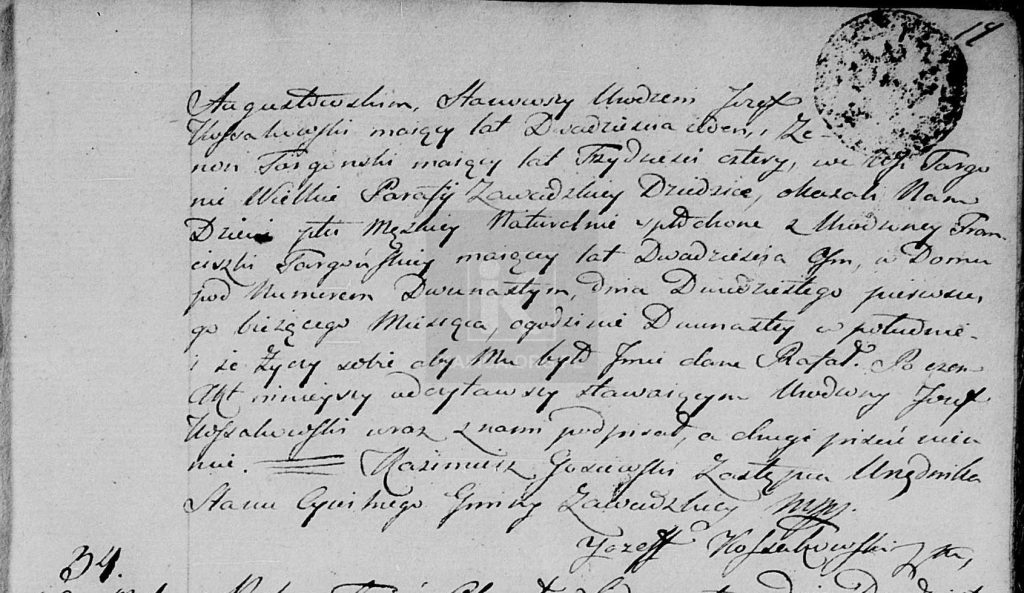 19
Augustowskim, Stawiwszy Urodzeni Jozef
Kossakowski maiący lat Dwadzieścia ieden, i Ze-
non Targonski maiący lat Trzydzieści cztery, we wsi Targo
nie Wielkie Parafij Zawadzkiey Dziedzice, okazali Nam
Dziecie płci Męzkiey Naturalnie spłodzone z Urodzoney Fran-
ciszki Targońskiey maiącey lat Dwadzieścia Ośm, w Domu
pod Numerem Dwunastym, dnia Dwudziestego pierwsze-
go bieżącego Miesiąca, o godzinie Dwunastey w południe
i że życzy sobie aby Mu było Jmie dane Rafał. Po czem
Akt ninieyszy odczytawszy stawaiącym Urodzony Jozef
Kossakowski wraz z nami podpisał, a drugi pisać nieu
mie. Kazimierz Gosiewski Zastępca Urzędnika
Stanu Cywilnego Gminy Zawadzkiey mpp.
Jozeff Kossakowski
34.